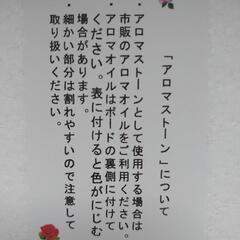 「アロマストーン」について
・アロマストーンとして使用する場合は
市販のアロマオイルをご利用ください。
・アロマオイルはボードの裏側に付けて
ください。表に付けると色がにじむ
場合があります。
・細かい部分は割れやすいので注意して
取り扱いください。